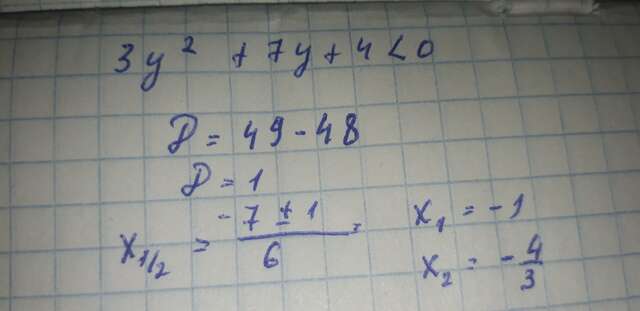 3y² + 7y + 4 < 0
D = 49 - 48
D = 1
x₁/₂ = (-7 ± 1)/6 = x₁ = -1
x₂ = -4/3